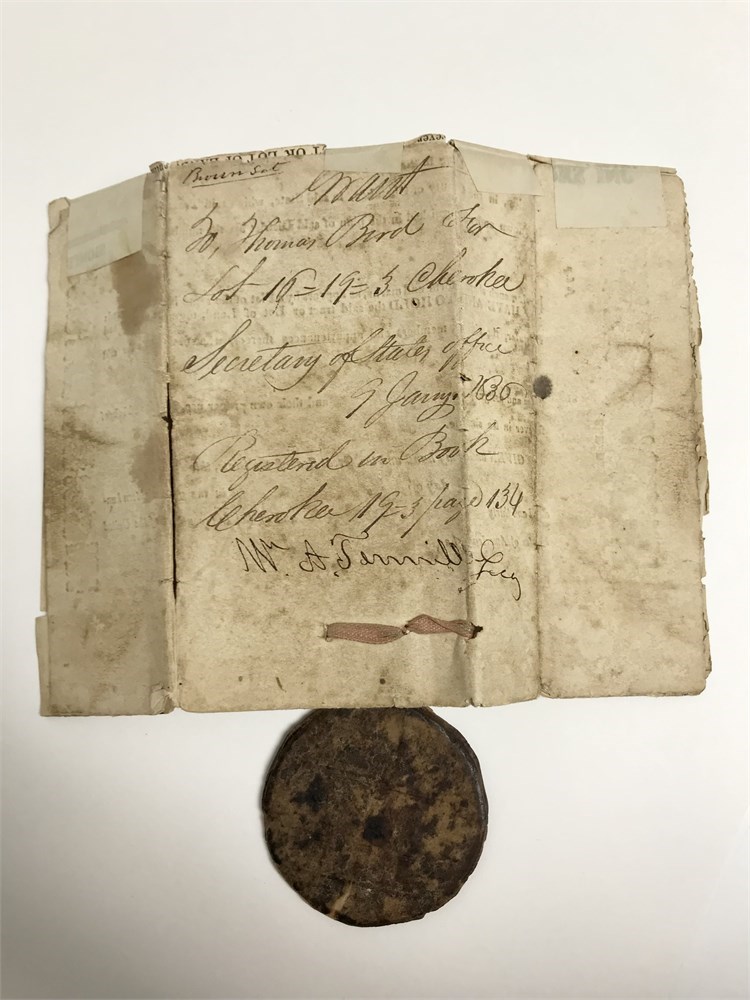 T OR LOT OF LAND
Brown Sot
Grant
To, Thomas Bird For
Lot 16=19=3 Cherokee
Secretary of States office
9 Jany. 1836
Registered in Book
Cherokee 19-3 page 134
Wm. A. Tennille Secy